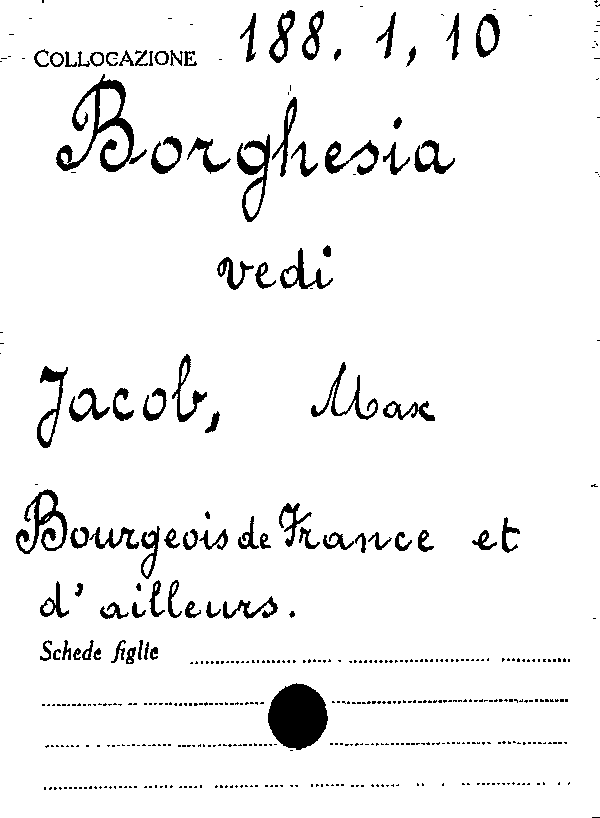 COLLOCAZIONE 188. 1, 10
Borghesia
vedi
Jacob, Max
Bourgeois de France et
d'ailleurs.
Schede figlie